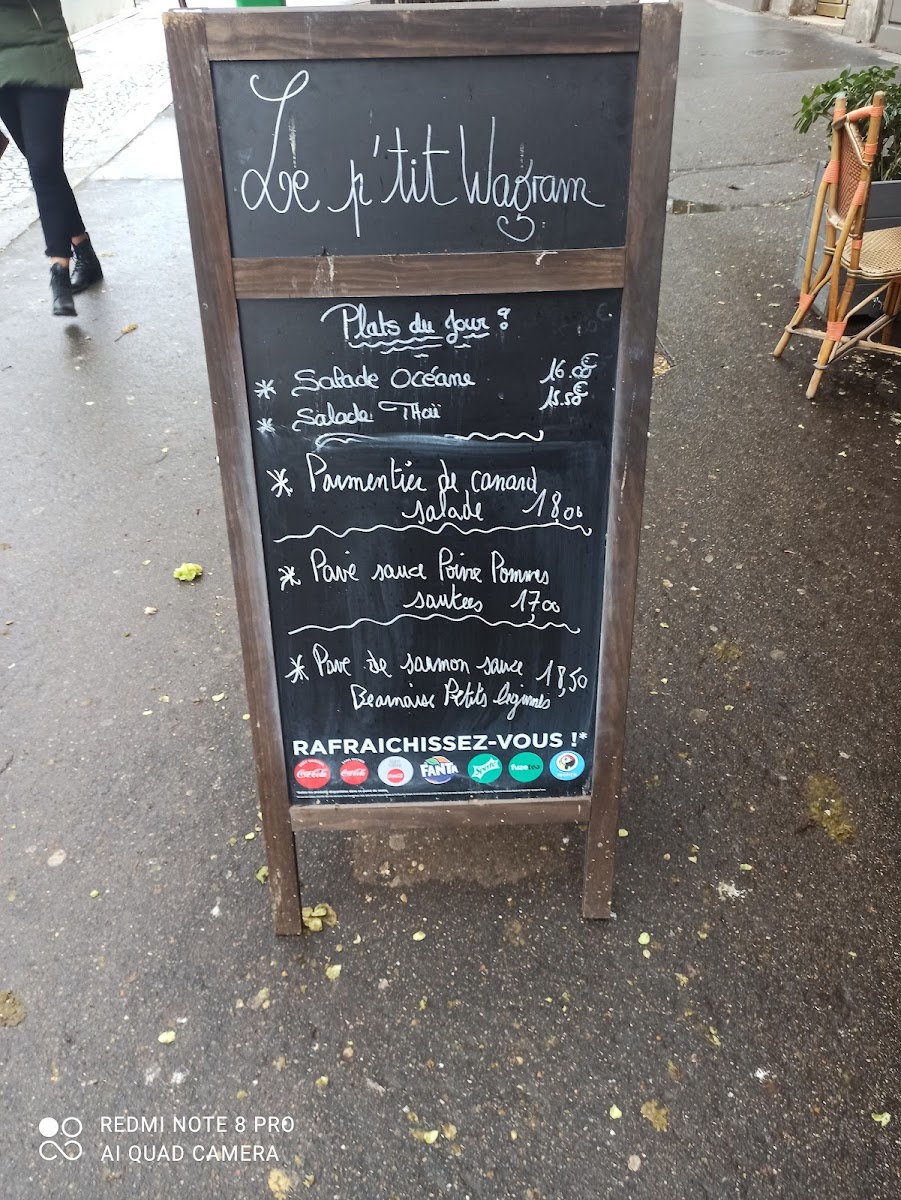 Le p'tit Wagram
Plats du Jour :
* Salade Océane 16.00€
* Salade Thaï 15.50€
* Parmentier de canard
salade 18,00
* Pavé sauce Poivre Pommes
sautées 17,00
* Pavé de saumon sauce 18,50
Bearnaise Petits légumes
RAFRAICHISSEZ-VOUS !*
Coca-Cola Coca-Cola Coca-Cola FANTA Sprite fuzetea
REDMI NOTE 8 PRO
AI QUAD CAMERA